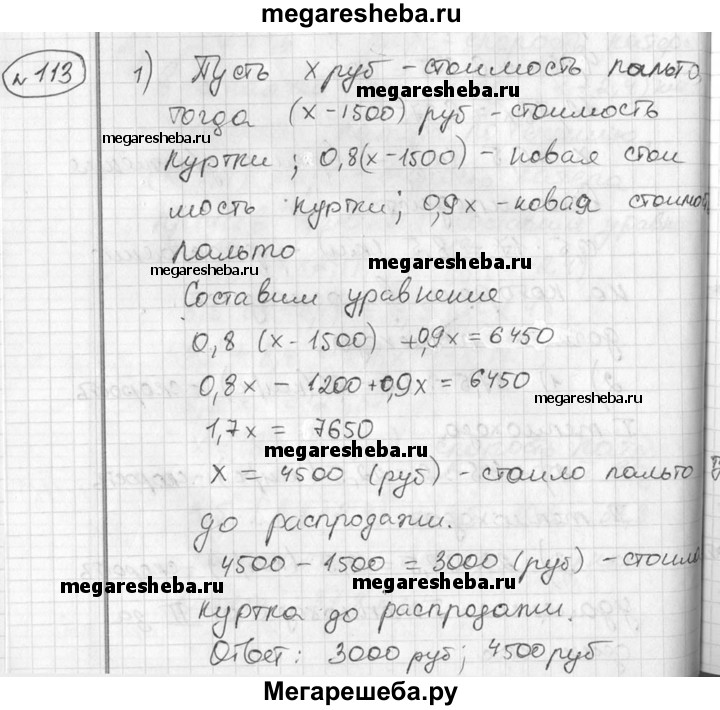 megaresheba.ru
№113 1) Пусть x руб - стоимость пальто,
тогда (x - 1500) руб - стоимость
megaresheba.ru megaresheba.ru
куртки; 0,8(x - 1500) - новая стои
мость куртки; 0,9x - новая стоимост
пальто
megaresheba.ru megaresheba.ru
Составим уравнение
0,8 (x - 1500) + 0,9x = 6450
0,8x - 1200 + 0,9x = 6450
megaresheba.ru
1,7x = 7650
megaresheba.ru
x = 4500 (руб) - стоило пальто
до распродажи.
4500 - 1500 = 3000 (руб) - стоила
megaresheba.ru megaresheba.ru
куртка до распродажи.
Ответ: 3000 руб; 4500 руб
Мегарешеба.ру